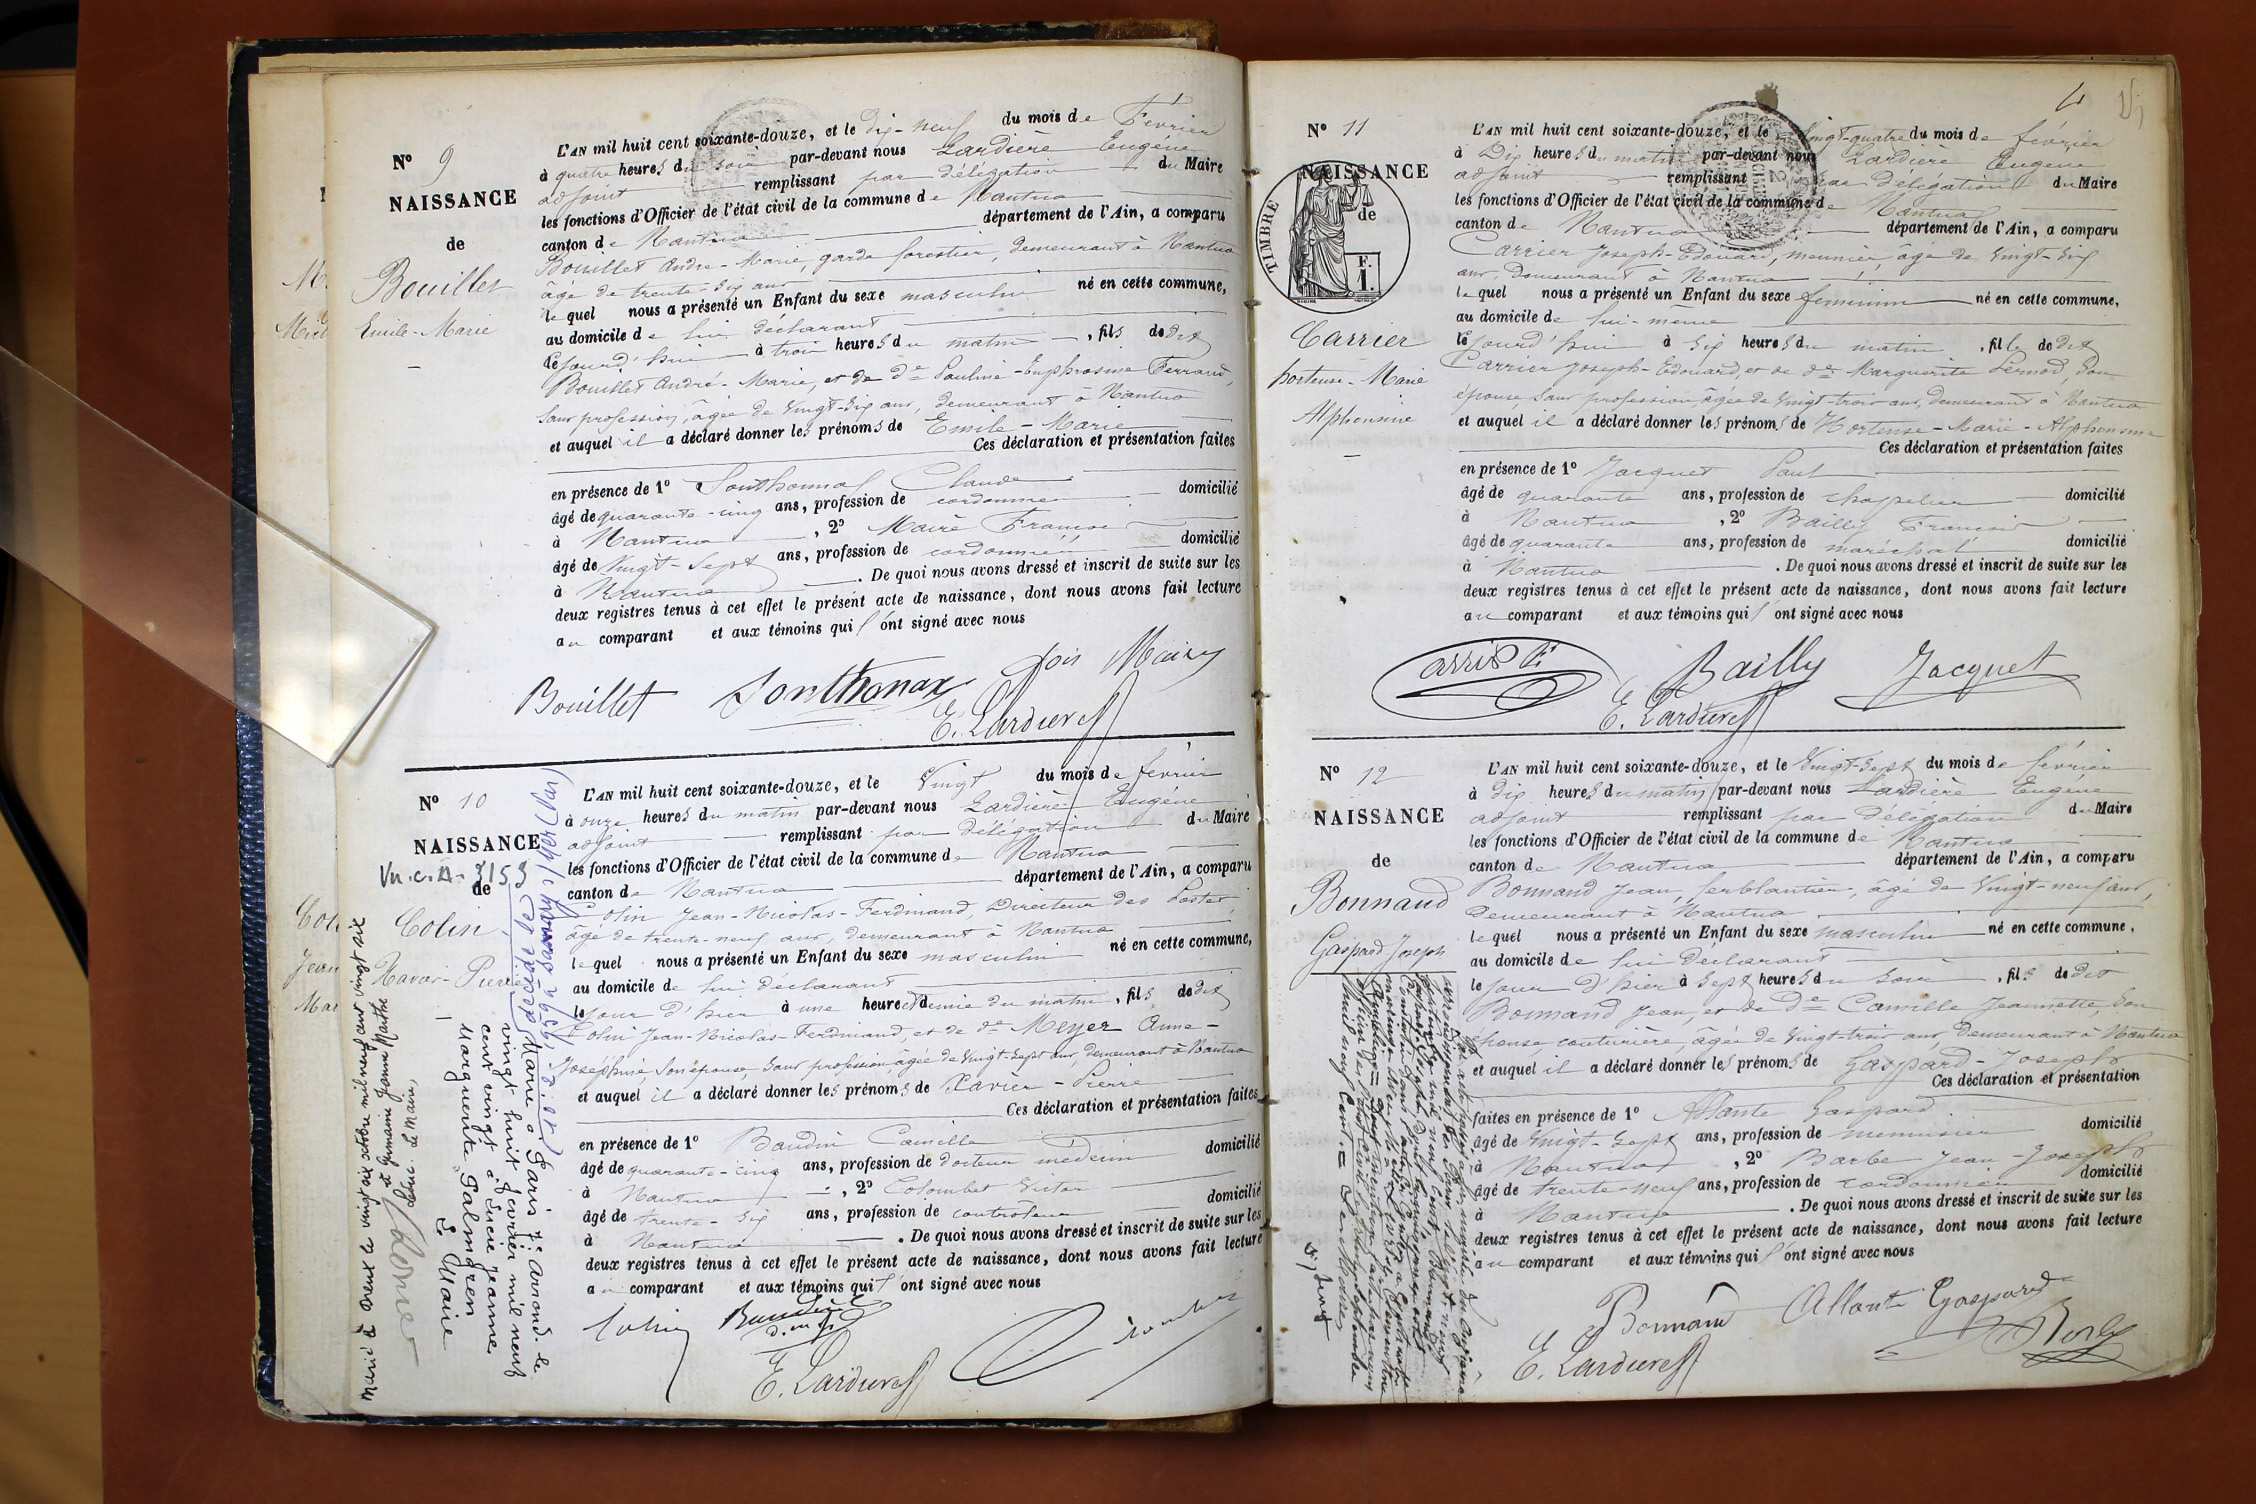 N° 9
NAISSANCE
de
Bouillet
Emile-Marie
L'AN mil huit cent soixante-douze, et le dix-neuf du mois de Février
à quatre heures du soir par-devant nous Lardière Eugène
adjoint remplissant par délégation du Maire
les fonctions d'Officier de l'état civil de la commune de Nantua
canton de Nantua département de l'Ain, a comparu
Bouillet André-Marie, garde forestier, demeurant à Nantua
âgé de trente-six ans
lequel nous a présenté un Enfant du sexe masculin né en cette commune,
au domicile de lui déclarant
cejourd'hui à trois heures du matin, fils de dit
Bouillet André-Marie, et de de Pauline-Euphrosine Ferrand,
sans profession, âgée de vingt-six ans, demeurant à Nantua
et auquel il a déclaré donner les prénoms de Emile-Marie
Ces déclaration et présentation faites
en présence de 1° Sonthonnax Claude
âgé de quarante-cinq ans, profession de cordonnier domicilié
à Nantua, 2° Maire François
âgé de vingt-sept ans, profession de cordonnier domicilié
à Nantua. De quoi nous avons dressé et inscrit de suite sur les
deux registres tenus à cet effet le présent acte de naissance, dont nous avons fait lecture
au comparant et aux témoins qui l'ont signé avec nous
Bouillet Sonthonax fois Maire
E. Lardière
N° 10
NAISSANCE
de
Colin
Xavier-Pierre
L'AN mil huit cent soixante-douze, et le Vingt du mois de février
à onze heures du matin par-devant nous Lardière Eugène
adjoint remplissant par délégation du Maire
les fonctions d'Officier de l'état civil de la commune de Nantua
canton de Nantua département de l'Ain, a comparu
Colin Jean-Nicolas-Ferdinand, Directeur des Postes,
âgé de trente-neuf ans, demeurant à Nantua
lequel nous a présenté un Enfant du sexe masculin né en cette commune,
au domicile de lui déclarant
le jour d'hier à une heure et demie du matin, fils de dit
Colin Jean-Nicolas-Ferdinand, et de de Meyer Anne-
Joséphine, son épouse, sans profession, âgée de vingt-sept ans, demeurant à Nantua
et auquel il a déclaré donner les prénoms de Xavier-Pierre
Ces déclaration et présentation faites
en présence de 1° Baudin Camille
âgé de quarante-cinq ans, profession de docteur médecin domicilié
à Nantua, 2° Colombet Victor
âgé de trente-six ans, profession de controleur domicilié
à Nantua. De quoi nous avons dressé et inscrit de suite sur les
deux registres tenus à cet effet le présent acte de naissance, dont nous avons fait lecture
au comparant et aux témoins qui l'ont signé avec nous
Colin Baudin
E. Lardière
Marié à Paris 7e arrond. le
vingt huit février mil neuf
cent vingt à Lucie Jeanne
Marguerite Palmgren
Le Maire
Marié à Dreux le vingt six octobre mil neuf cent vingt six
à Germaine Jeanne Marthe
Le Maire,
décédé le
N° 11
NAISSANCE
de
TIMBRE
F.
1.
Carrier
hortense-Marie
Alphonsine
L'AN mil huit cent soixante-douze, et le vingt-quatre du mois de février
à Dix heures du matin par-devant nous Lardière Eugène
adjoint remplissant par délégation du Maire
les fonctions d'Officier de l'état civil de la commune de Nantua
canton de Nantua département de l'Ain, a comparu
Carrier Joseph-Edouard, meunier, âgé de vingt-six
ans, demeurant à Nantua
lequel nous a présenté un Enfant du sexe féminin né en cette commune,
au domicile de lui-même
cejourd'hui à six heures du matin, fille de dit
Carrier Joseph-Edouard, et de de Marguerite Pernod, son
épouse, sans profession, âgée de vingt-trois ans, demeurant à Nantua
et auquel il a déclaré donner les prénoms de Hortense-Marie-Alphonsine
Ces déclaration et présentation faites
en présence de 1° Jacquet Paul
âgé de quarante ans, profession de chapelier domicilié
à Nantua, 2° Bailly François
âgé de quarante ans, profession de maréchal domicilié
à Nantua. De quoi nous avons dressé et inscrit de suite sur les
deux registres tenus à cet effet le présent acte de naissance, dont nous avons fait lecture
au comparant et aux témoins qui l'ont signé avec nous
Bailly Jacquet
E. Lardière
N° 12
NAISSANCE
de
Bonnand
Gaspard Joseph
L'AN mil huit cent soixante-douze, et le vingt-sept du mois de février
à dix heures du matin par-devant nous Lardière Eugène
adjoint remplissant par délégation du Maire
les fonctions d'Officier de l'état civil de la commune de Nantua
canton de Nantua département de l'Ain, a comparu
Bonnand Jean, ferblantier, âgé de vingt-neuf ans,
demeurant à Nantua
lequel nous a présenté un Enfant du sexe masculin né en cette commune,
au domicile de lui déclarant
le jour d'hier à sept heures du soir, fils de dit
Bonnand Jean, et de De Camille Jeannette, son
épouse, couturière, âgée de vingt-trois ans, demeurant à Nantua
et auquel il a déclaré donner les prénoms de Gaspard-Joseph
Ces déclaration et présentation
faites en présence de 1° Allante Gaspard
âgé de vingt-sept ans, profession de menuisier domicilié
à Nantua, 2° Barbe Jean-Joseph
âgé de trente-neuf ans, profession de cordonnier domicilié
à Nantua. De quoi nous avons dressé et inscrit de suite sur les
deux registres tenus à cet effet le présent acte de naissance, dont nous avons fait lecture
au comparant et aux témoins qui l'ont signé avec nous
Bonnand Allante Gaspard
E. Lardière